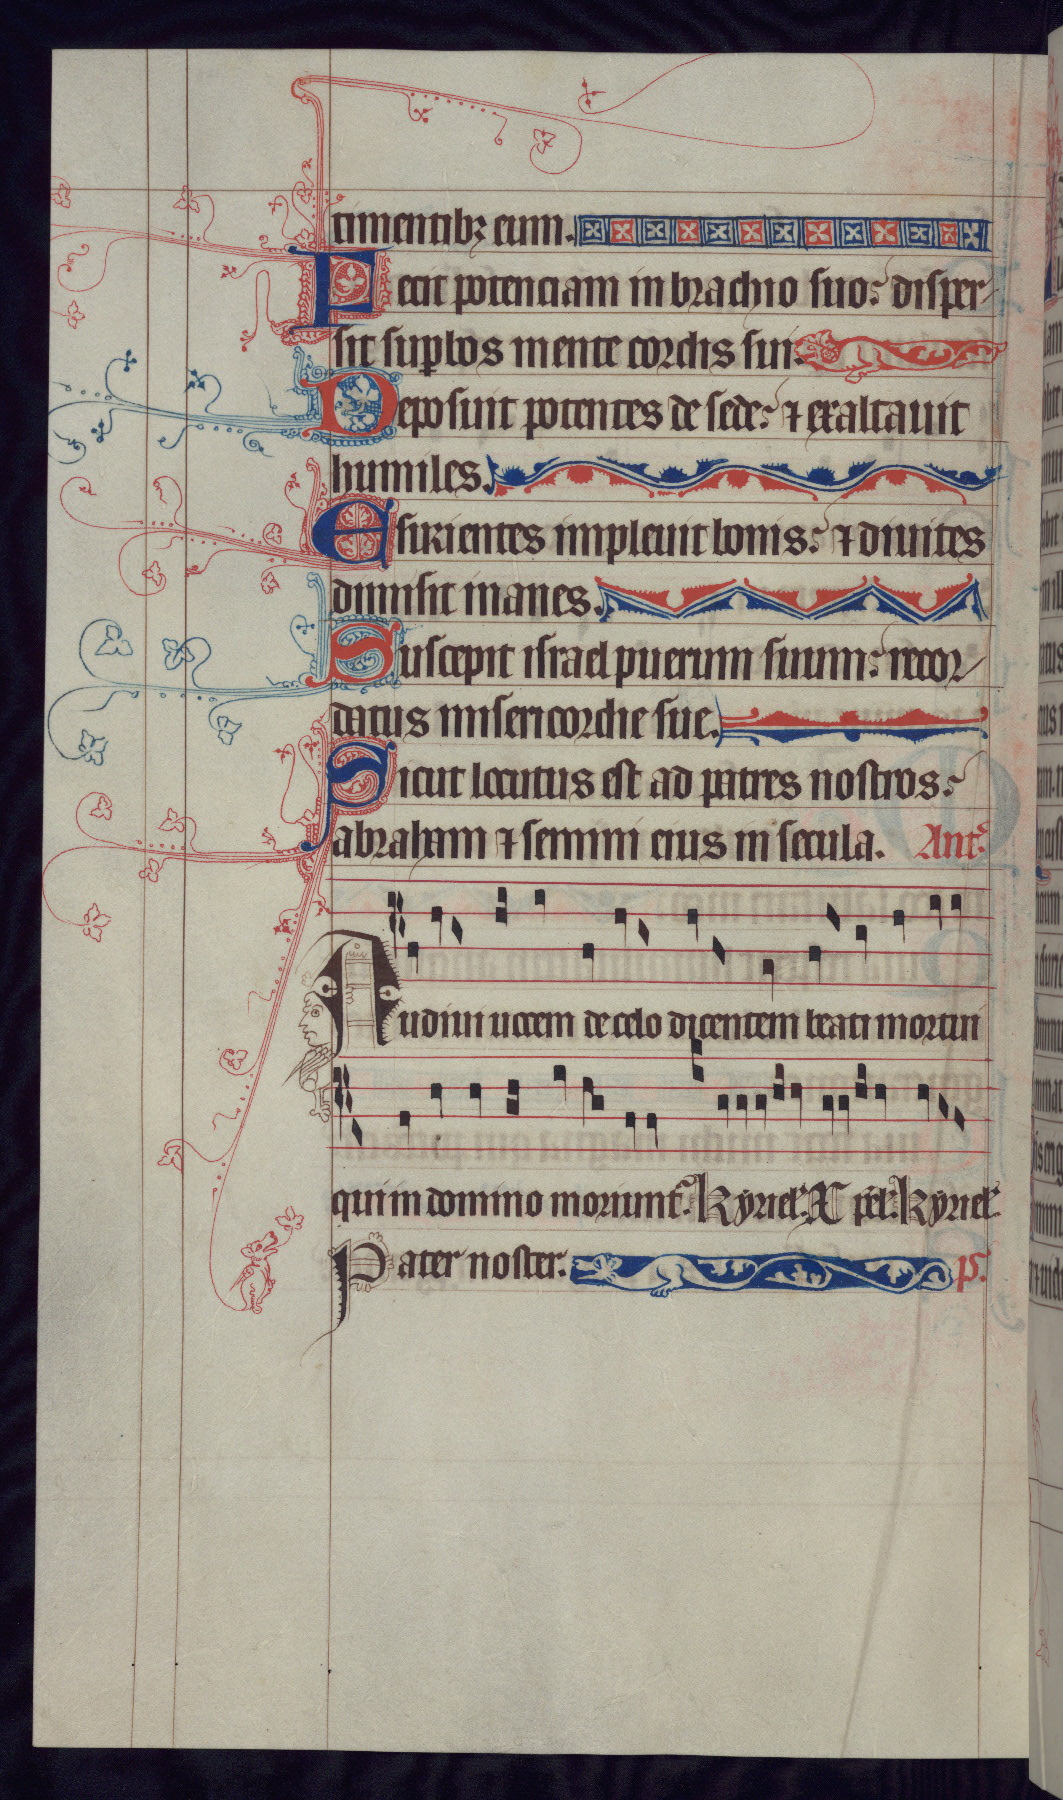 timentibꝫ eum.
Fecit potenciam in brachio suo: disper-
sit supꝑbos mente cordis sui.
Deposuit potentes de sede: ⁊ exaltauit
humiles.
Esurientes impleuit bonis: ⁊ diuites
dimisit inanes.
Suscepit israel puerum suum: recor-
datus misericordie sue.
Sicut locutus est ad patres nostros:
abraham ⁊ semini eius in secula. Ant.
Audiui uocem de celo dicentem beati mortui
qui in domino moriunt᷑. Kyriel. X p̄el. Kyriel.
Pater noster. ps.